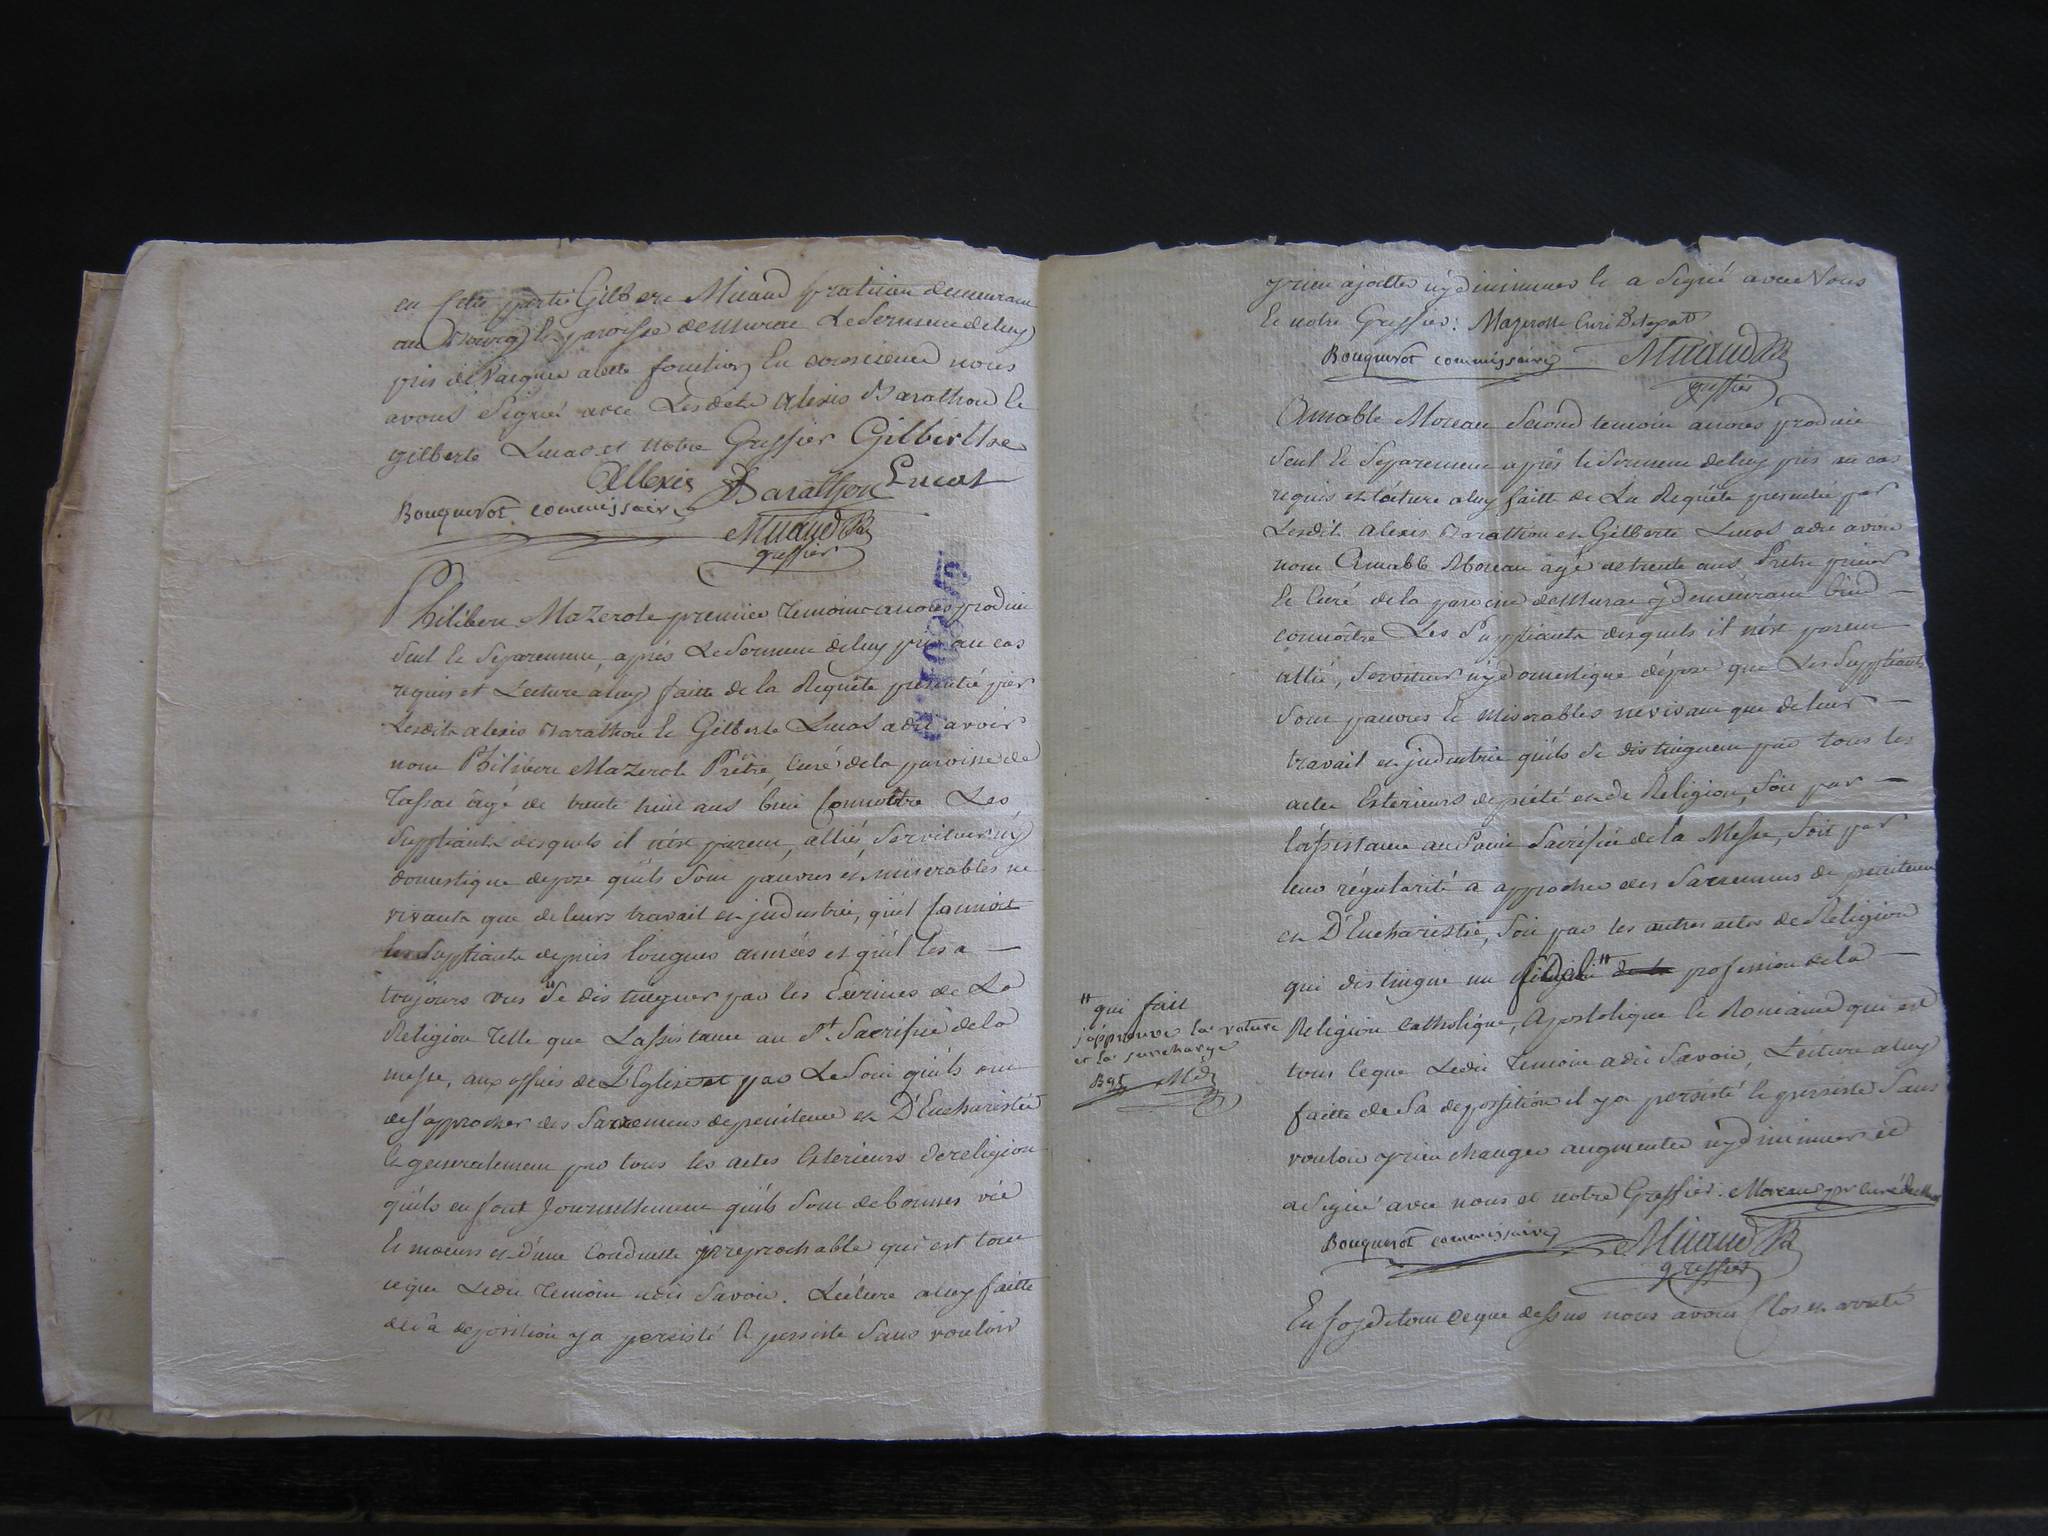 en cette partie Gilbere Micaud praticien demeurant
au Bourg et paroisse de Murat Le Serment de luy
pris de Vacquer a cette fonction En conscience nous
avons Signé avec Lesdits Alexis Barathon et
gilberte Lucas et notre Greffier Gilberthe
Allexis Barathon Lucas
Bouquerot commissaire
Micaud
greffier
Philibere Mazerole premier temoin a nous produit
Seul et Separement, après Le Serment de luy pris au cas
requis et Lecture a luy faitte de la Requête presentée par
Lesdits alexis Barathon et Gilberte Lucas a dit avoir
nom Philibere Mazerole Prêtre, Curé de la paroisse de
agé de trente huit ans bien Connoître Les
Suppliants desquels il n'est parent, alliés, Serviteur ny
domestique depose qu'ils Sont pauvres et miserables ne
vivants que de leurs travail et judustrie, qu'il Connoit
les Suppliants depuis longues années et qu'il les a
toujours vus Se distinguer par les Exercices de La
Religion Telle que Lassistance au St. Sacrifice de la
messe, aux offices de L'Eglise et par Le Soin qu'ils ont
de S'approcher des Sacremens de penitence et D'Eucharistie
et generalement par tous les actes Exterieurs de religion
qu'ils en font Journellement qu'ils Sont de bonnes vie
Et moeurs et d'une Conduitte jrreprochable qui est tout
ce que Ledit Temoin a dit Savoir. Lecture a luy faitte
de Sa deposition y a persisté et persiste Sans vouloir
y rien ajoutter ny diminuer et a Signé avec Nous
Et notre Greffier: Mazerolle Curé
Bouquerot commissaire Micaud
greffier
Amable Moreau Second temoin a nous produit
Seul et Separement après le Serment de luy pris au cas
requis et Lecture a luy faitte de La Requête presentée par
Lesdits Alexis Barathon et Gilberte Lucas a dit avoir
nom Amable Moreau agé de trente ans Prêtre prieur
et Curé de la paroisse de Murat y demeurant bien
connoître Les Suppliants desquels il n'est parent
allié, Serviteur ny domestique dépose que Les Suppliants
Sont pauvres et miserables ne vivant que de leur
travail et judustrie qu'ils Se distinguent par tous les
actes Exterieurs de piété et de Religion, Soit par
l'assistance au Saint Sacrifice de la Messe, Soit par
leur régularité a approcher des Sacremens de penitence
et D'Eucharistie, Soit par les autres actes de Religion
qui distingue un fidel " profession de la
" qui fait
j'approuve la rature
et la surcharge
Bqt
Religion Catholique, Apostolique et Romaine qui est
tout ce que Ledit Temoin a dit Savoir, Lecture a luy
faitte de Sa deposition il y a persisté et persiste Sans
vouloir y rien changer augmenter ny diminuer et
a Signé avec nous et notre Greffier: Moreau pr curé de Murat
Bouquerot commissaire Micaud
greffier
En foy de tout ce que dessus nous avons Clos et arreté